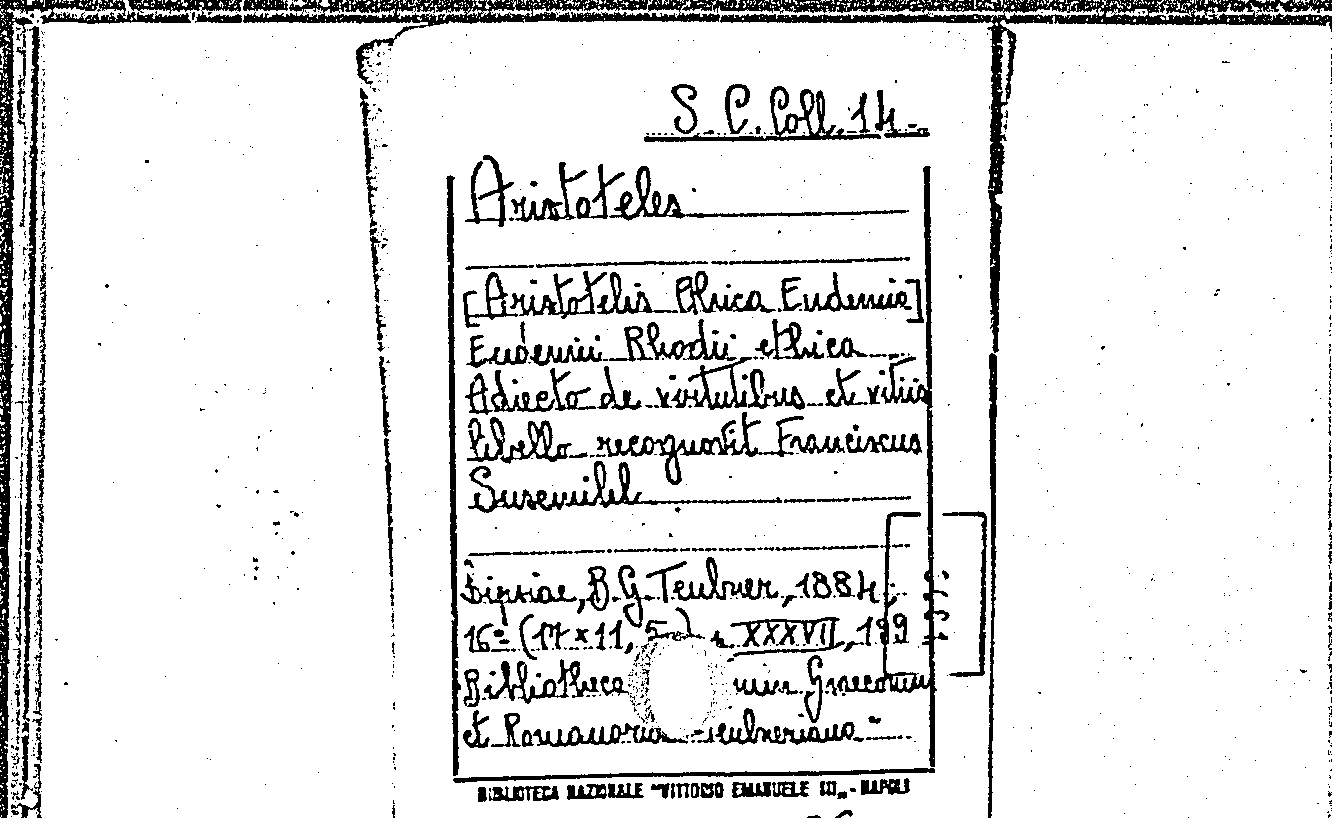 S. C. Coll. 14.-
Aristoteles.
[Aristotelis Ethica Eudemia]
Eudemii Rhodii ethica
Adiecto de virtutibus et vitiis
libello recognovit Franciscus
Susemihl
Lipsiae, B. G. Teubner, 1884,
16º (17 x 11, 5) XXXVII, 199
Bibliotheca Graecorum
et Romanorum Teubneriana"
BIBLIOTECA NAZIONALE "VITTORIO EMANUELE III„ - NAPOLI